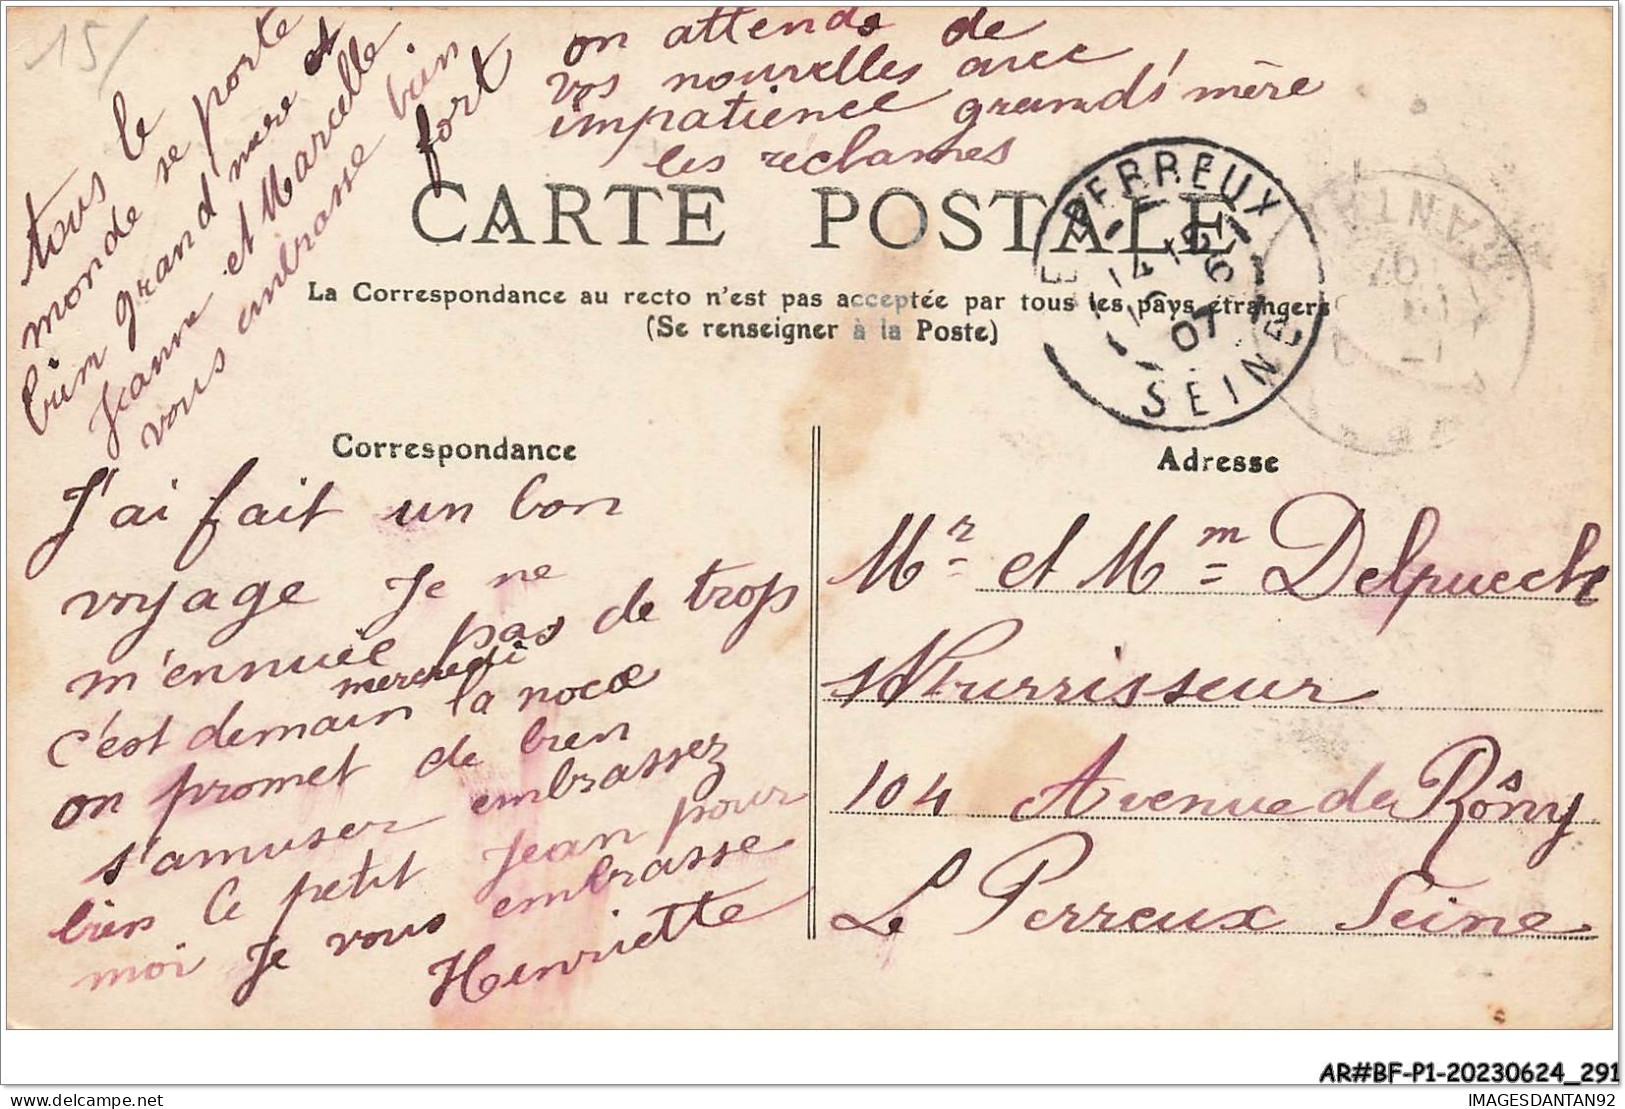 15/
tous le
monde se porte
bien grand mere et
Jeanne et Marcelle
vous embrasse bien
fort
on attends de
vos nouvelles avec
impatience grand'mère
les reclames
CARTE POSTALE
La Correspondance au recto n'est pas acceptée par tous les pays étrangers
(Se renseigner à la Poste)
LE PERREUX
14 15
6
07
SEINE
Correspondance
J'ai fait un bon
voyage Je ne
m'ennuie pas de trop
mercredi
c'est demain la noce
on promet de bien
s'amuser embrassez
bien le petit Jean pour
moi Je vous embrasse
Henriette
Adresse
Mr et Mm Delpuech
Nurrisseur
104 Avenue de Rôsny
Le Perreux Seine
AR#BF-P1-20230624_291
IMAGESDANTAN92